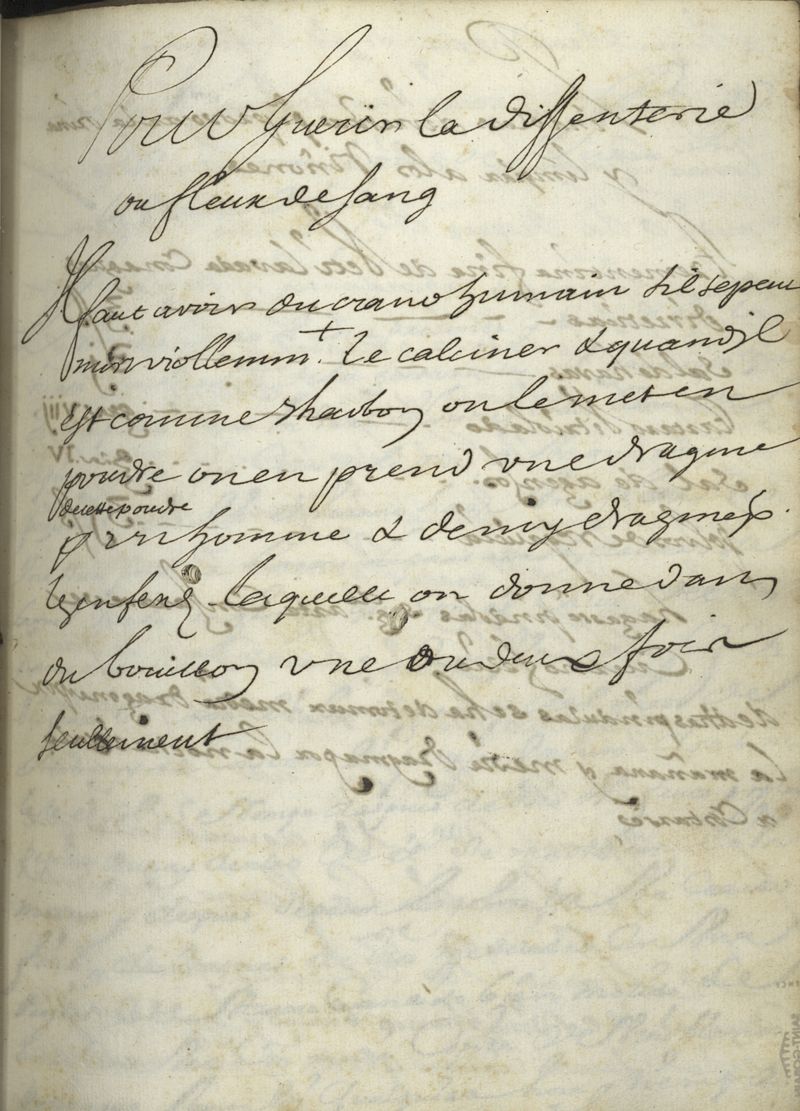 Pour Guerir la dissenterie
ou fleux de sang
Il faut avoir du crane humain s'il se peu
mort viollemm.t + le calciner & quand il
est comme charbon on le met en
poudre on en prend vne dragme
de cette poudre
pr vn homme & demy dragme p.
les enfens laquelle on donne dans
du bouillon vne ou deux fois
seullement